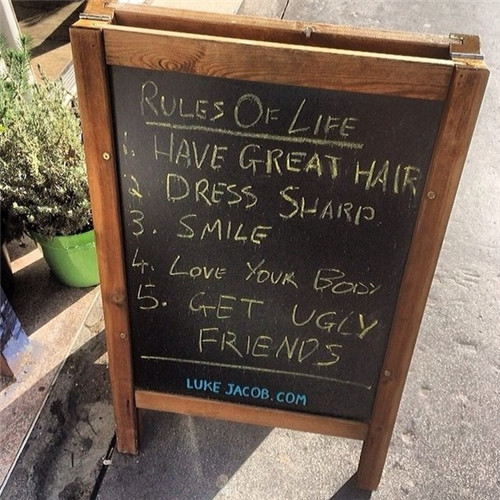 RULES OF LIFE
1. HAVE GREAT HAIR
2. DRESS SHARP
3. SMILE
4. LOVE YOUR BODY
5. GET UGLY
FRIENDS
LUKE JACOB.COM